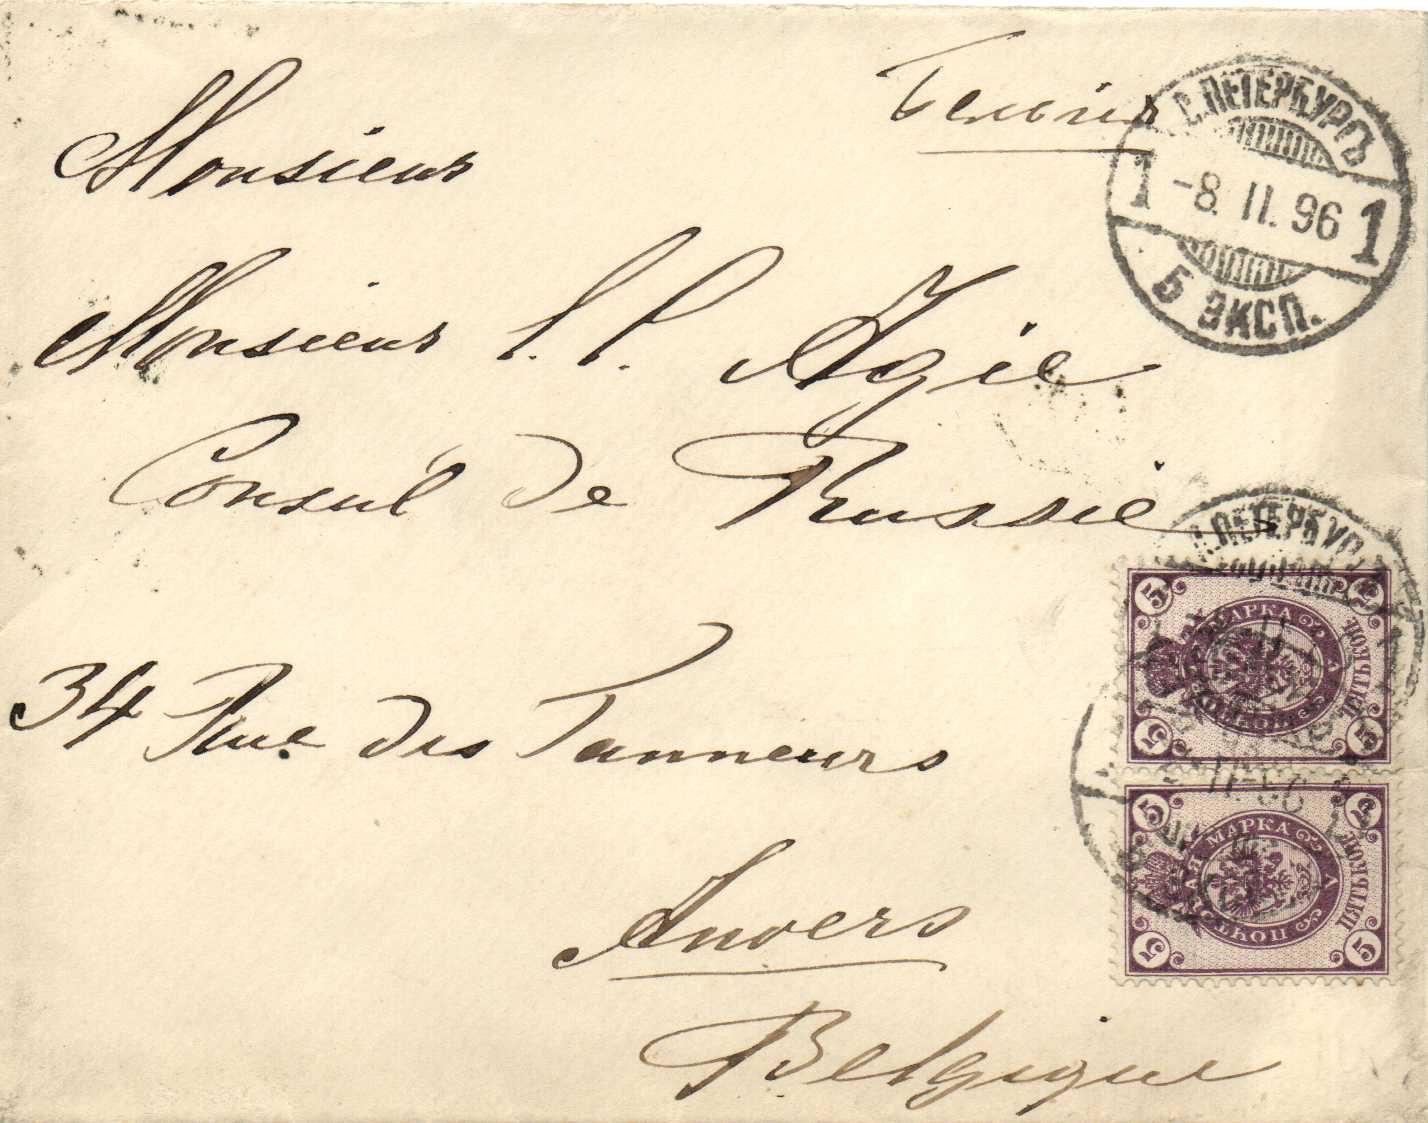 Бельгія
С.ПЕТЕРБУРГЪ
1 -8. II. 96 1
Б ЭКСП.
Monsieur
Monsieur
Agie
Consul de Russie
34 Rue des Tanneurs
Anvers
Belgique
.ПЕТЕРБУР
5 МАРКА 5
ПЯТЬ КОП
5 5
5 МАРКА 5
ПЯТЬ КОП
5 5